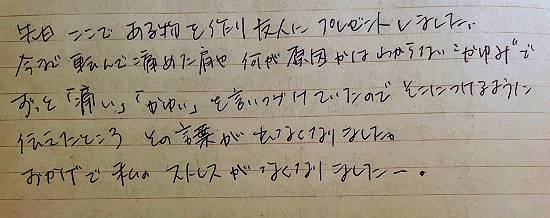 先日 ここで ある物を作り 友人に プレゼントしました。
今まで 転んで痛めた肩や 何が原因かは わからない "かゆみ" で
ずっと 「痛い」 「かゆい」 を言いつづけていたので そこにつけるように
伝えたところ その言葉が なくなりました。
おかげで 私の ストレスが なくなりましたー。